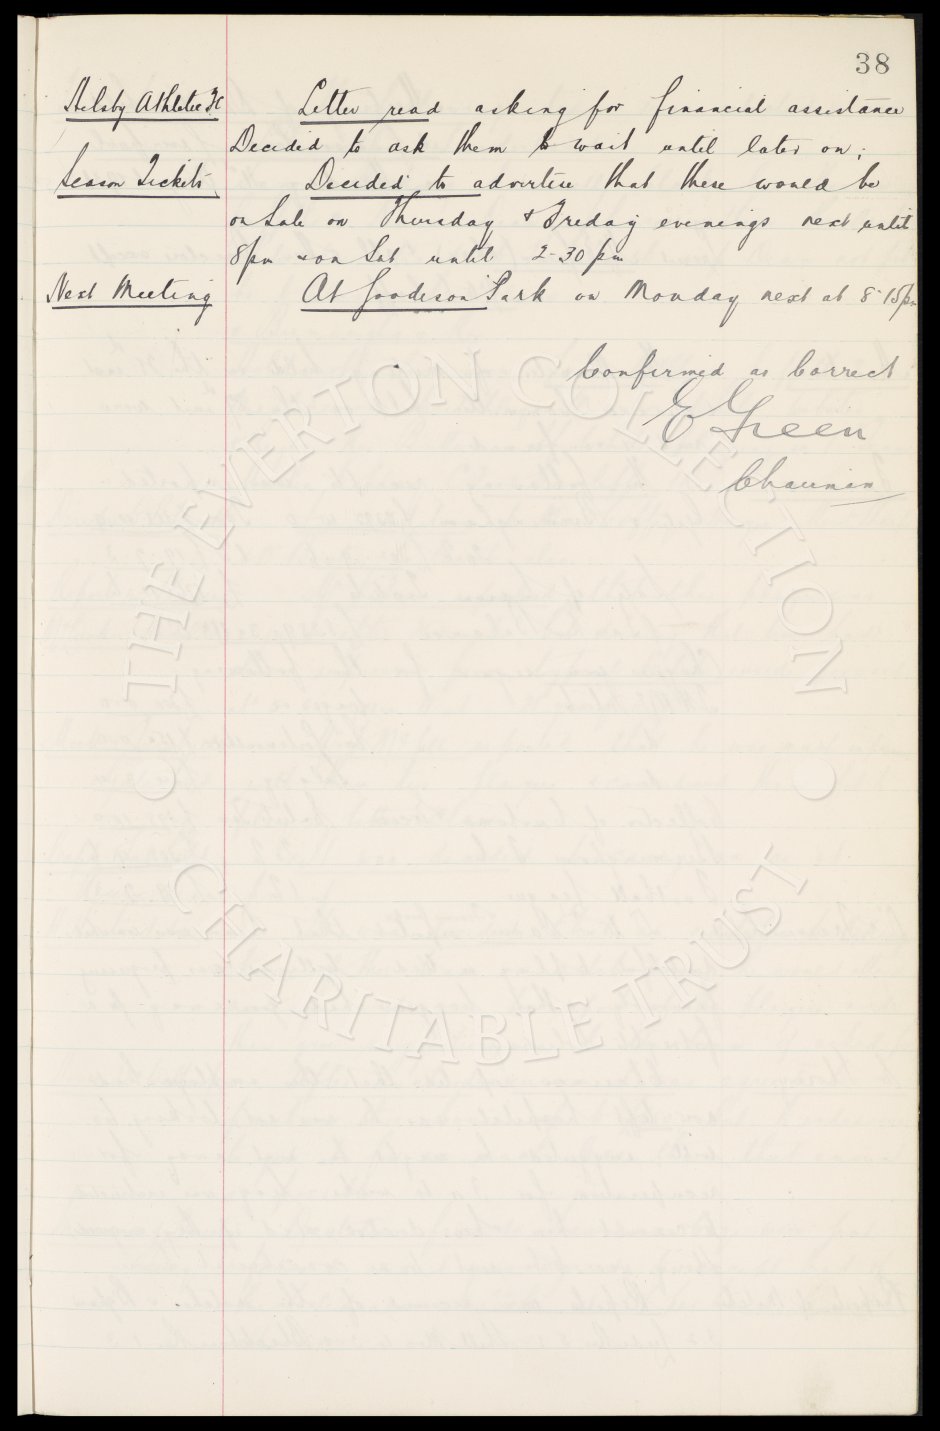 38
Helsby Athletic FC Letter read asking for financial assistance
Decided to ask them to wait until later on.
Season Tickets Decided to advertise that these would be
on Sale on Thursday & Friday evenings next until
8pm & on Sat until 2-30 pm
Next Meeting At Goodison Park on Monday next at 8-15pm
Confirmed as Correct
E Green
Chairman
THE EVERTON COLLECTION
CHARITABLE TRUST